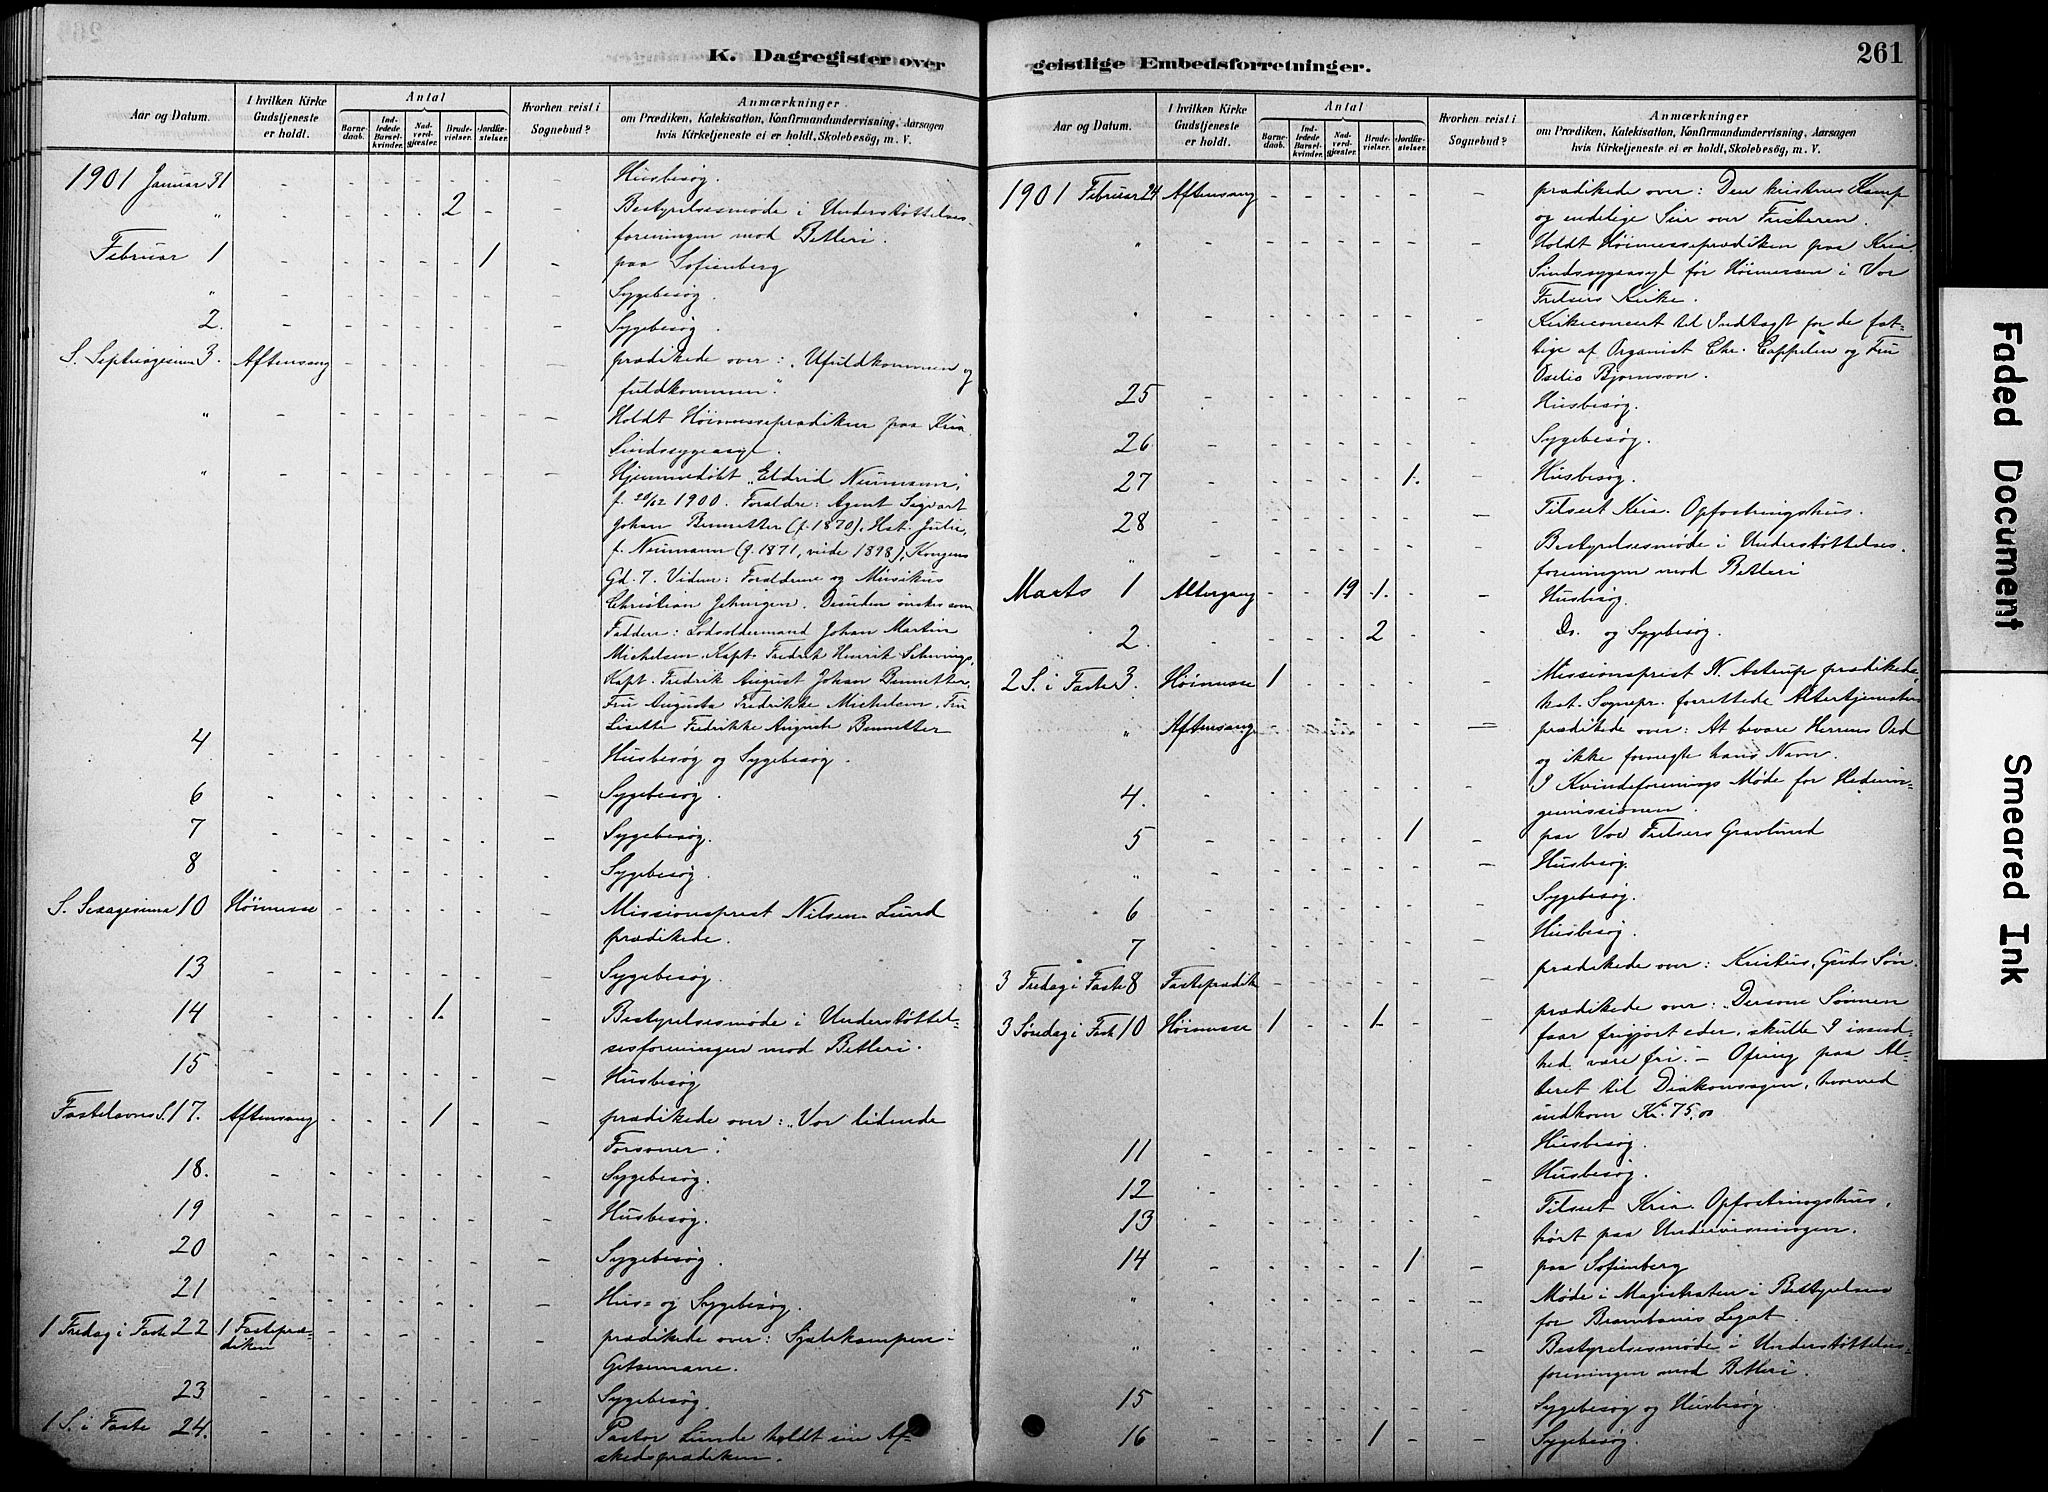 K. Dagregister over
Aar og Datum.
I hvilken Kirke Gudstjeneste er holdt.
Antal
Barnedaab.
Indledede Barselkvinder.
Nadverdgjæster.
Brudevielser.
Jordfæstelser.
Hvorhen reist i Sognebud?
Anmærkninger
om Prædiken, Katekisation, Konfirmandundervisning, Aarsagen
hvis Kirketjeneste ei er holdt, Skolebesøg, m. V.
1901 Januar 31 - - - - - - - Husbesøg.
" - - - 2 - - Bestyrelsesmøde i Understøttelses-
foreningen mod Betleri.
Februar 1 - - - - - 1 - paa Sofienberg
" - - - - - - - Sygebesøg.
2. - - - - - - - Sygebesøg.
S. Septuagesima 3. Aftensang - - - - - - prædikede over: "Ufuldkommen og
fuldkommen".
" - - - - - - - Holdt Høimesseprædiken paa Kria
Sindssygeasyl.
" - - - - - - - Hjemmedøbt "Eldrid Neumann",
f. 20/12 1900. Forældre: Agent Sigvart
Johan Bennetter (f. 1870), Hst. Julie,
f. Neumann (f. 1871, viede 1898), Kongens
Gd. 7. Vidner: Forældrene og Musikus
Christian Jehnigen. Desuden ønskes som
Faddere: Lodsoldermand Johan Martin
Michelsen, Kapt. Fredrik Henrik
Kapt. Fredrik August Johan Bennetter,
Fru Augusta Fredrikke Michelsen, Fru
Lisette Fredrikke Auguste Bennetter
4 - - - - - - - Husbesøg og Sygebesøg.
6 - - - - - - - Sygebesøg.
7 - - - - - - - Sygebesøg.
8 - - - - - - - Sygebesøg.
S. Sexagesima 10 Høimesse - - - - - - Missionsprest Nilsen-Lund
prædikede.
13 - - - - - - - Sygebesøg.
14 - - - - 1. - - Bestyrelsesmøde i Understøttel-
sesforeningen mod Betleri.
15 - - - - - - - Husbesøg
Fastelavns S. 17. Aftensang - - - 1 - - prædikede over: "Vor lidende
Forsoner".
18. - - - - - - - Sygebesøg.
19 - - - - - - - Husbesøg.
20 - - - - - - - Sygebesøg.
21 - - - - - - - Hus- og Sygebesøg.
1 Fredag i Faste 22 1 Fastepræ-
diken - - - - - - prædikede over: Sjælekampen i
Getsemane.
23 - - - - - - - Sygebesøg.
1 S. i Faste 24. - - - - - - - Pastor Lunde holdt sin Af-
skedsprædiken.
geistlige Embedsforretninger.
261
Aar og Datum.
I hvilken Kirke Gudstjeneste er holdt.
Antal
Barnedaab.
Indledede Barselkvinder.
Nadverdgjæster.
Brudevielser.
Jordfæstelser.
Hvorhen reist i Sognebud?
Anmærkninger
om Prædiken, Katekisation, Konfirmandundervisning, Aarsagen
hvis Kirketjeneste ei er holdt, Skolebesøg, m. V.
1901 Februar 24 Aftensang - - - - - - prædikede over: Den kristnes Kamp
og endelige Seir over Fristeren.
" - - - - - - - Holdt Høimesseprædiken paa Kria
Sindssygeasyl før Høimessen i Vor
Frelsers Kirke.
" - - - - - - - Kirkeconcert til Indtægt for de fat-
tige af Organist Chr. Cappelen og Fru
Oselio Bjørnson.
25 - - - - - - - Husbesøg.
26 - - - - - - - Sygebesøg.
27 - - - - - 1. - Husbesøg.
28 - - - - - - - Tilseet Kria. Opfostringshus.
" - - - - - - - Bestyrelsesmøde i Understøttelses-
foreningen mod Betleri
Marts 1 Altergang - - 19 1. - - Husbesøg.
2. - - - - 2 - - Do. og Sygebesøg.
2 S. i Faste 3. Høimesse 1 - - - - - Missionsprest N. Astrup prædikede,
kst. Sognepr. forrettede Altertjenesten
" Aftensang - - - - - - prædikede over: At bevare Herrens Ord
og ikke fornegte hans Navn.
4. - - - - - - - I Kvindeforenings Møde for Hednin-
gemissionen.
5 - - - - - 1 - paa Vor Frelsers Gravlund
" - - - - - - - Husbesøg.
6 - - - - - - - Sygebesøg.
7 - - - - - - - Husbesøg.
3 Fredag i Faste 8 Fasteprædik - - - - - - prædikede over: Kristus, Guds Søn.
3 Søndag i Fast 10 Høimesse 1 - - 1 - - prædikede over: "Dersom Sønnen
faar frigjort eder, skulle I isand-
hed være fri." - Ofring paa Al-
teret til Diakonsagen, hvorved
indkom Kr. 75,00
11 - - - - - - - Husbesøg.
12 - - - - - - - Husbesøg.
13 - - - - - - - Tilseet Kria Opfostringshus,
hørt paa Undervisningen.
14 - - - - - 1 - paa Sofienberg
" - - - - - - - Møde i Magistraten i Bestyrelsen
for Legat.
" - - - - - - - Bestyrelsesmøde i Understøttelses-
foreningen mod Betleri.
15 - - - - - - - Sygebesøg og Husbesøg.
16 - - - - 1 - - Sygebesøg.
Faded Document
Smeared Ink